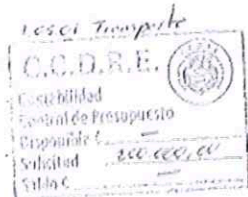 Transporte
C.C.D.R.E.
Contabilidad
Control de Presupuesto
Disponible ₡ —
Solicitud 200.000,00
Saldo ₡ —